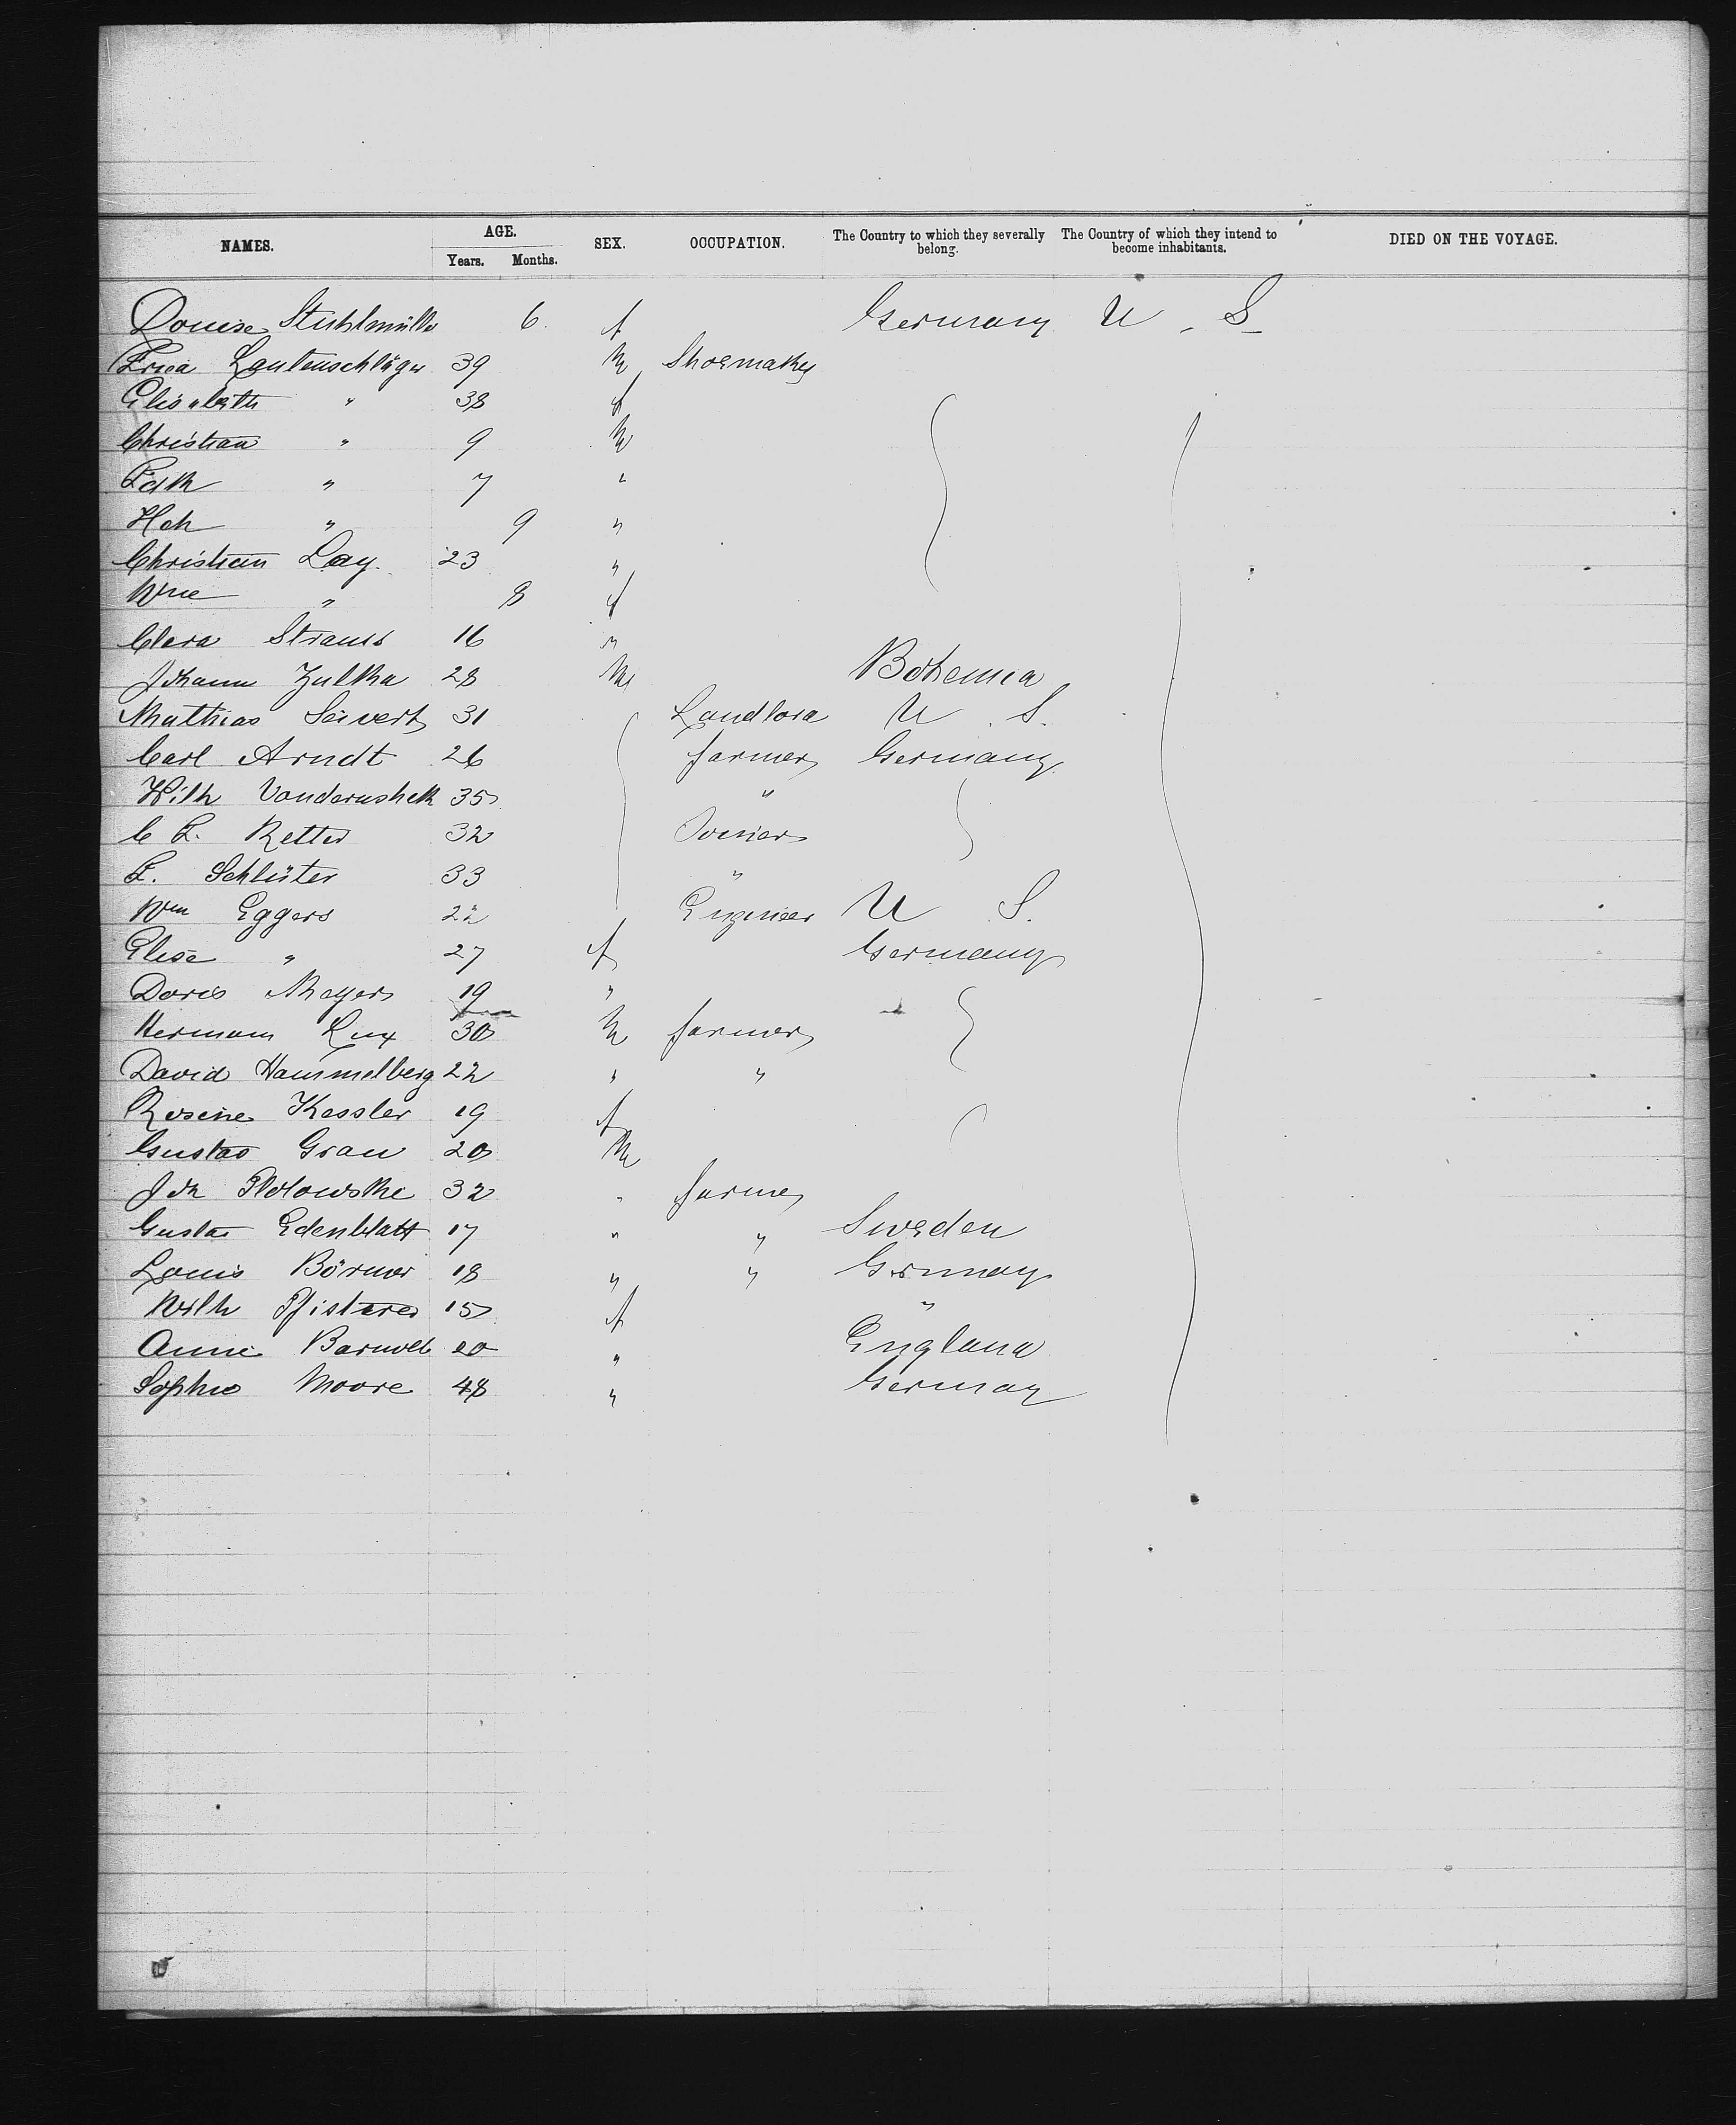 NAMES. AGE. SEX. OCCUPATION. The Country to which they severally belong. The Country of which they intend to become inhabitants. DIED ON THE VOYAGE.
Years. Months.
Louise Stuhlmüller 6. f Germany U. S.
Lautenschläger 39 M Shoemaker
Elisabeth " 38 f
Christian " 9 M
" 7 "
Hch " 9 "
Christian Lay 23 "
Wme " 8 f
Clara Strauss 16 "
Johann Zulka 28 M Bohemia
Mathias Seivert 31 Landlord U. S.
Carl Arndt 26 farmer Germany
Wilh 35 "
C L. Retter 32 Joiner
L. Schlüter 33 "
Wm Eggers 22 Engineer U S.
Elise " 27 f Germany
Doris Meyer 19 "
Hermann Lux 30 M farmer
David Hammelberg 22 " "
Rosine Kessler 19 f
Gustav Grau 20 M
Joh 32 " farmer
Gustav Edenblatt 17 " " Sweden
Louis Börner 18 " " Germany
Wilh Pfisterer 15 f "
Anne 20 " England
Sophie Moore 48 " Germany